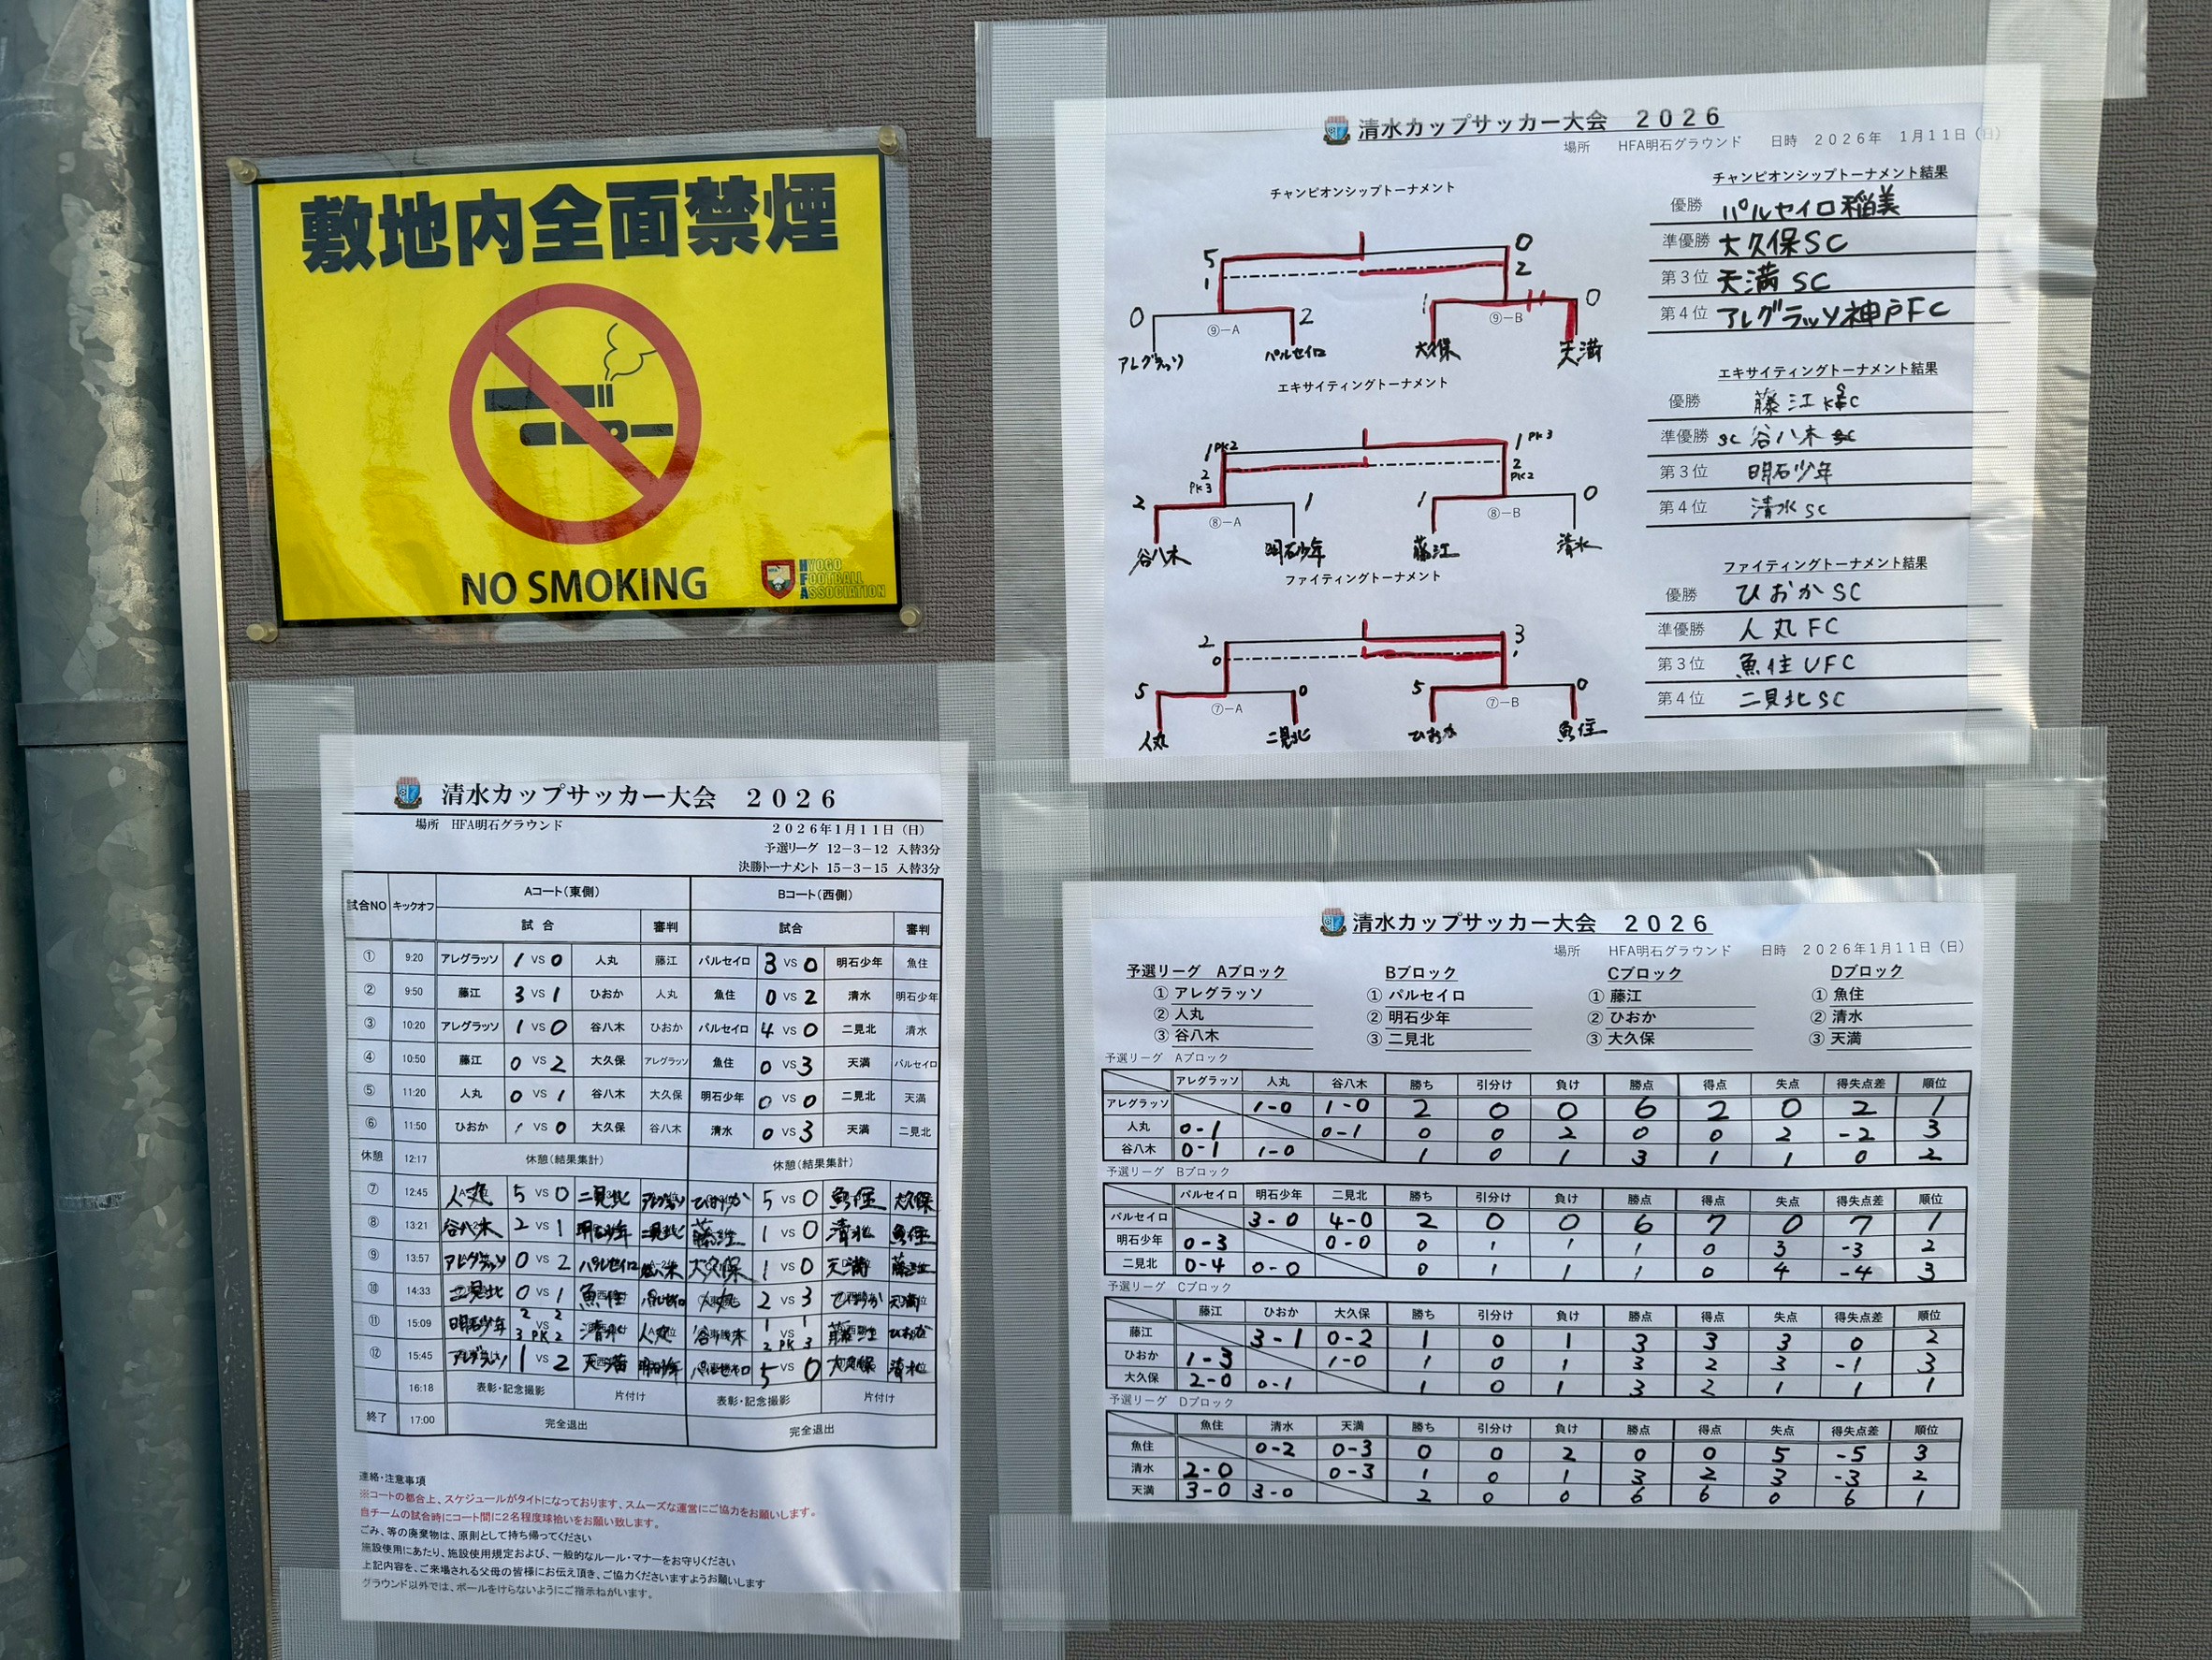 敷地内全面禁煙
NO SMOKING
HYOGO
FOOTBALL
ASSOCIATION
清水カップサッカー大会 2026
場所 HFA明石グラウンド 日時 2026年 1月11日(日)
チャンピオンシップトーナメント
5 0
1 2
0 2 1 0
⑨－A ⑨－B
アレグラッソ パルセイロ 大久保 天満
エキサイティングトーナメント
1 PK2 1 PK3
2 PK3 2 PK2
2 1 1 0
⑧－A ⑧－B
谷八木 明石少年 藤江 清水
ファイティングトーナメント
2 3
0 1
5 0 5 0
⑦－A ⑦－B
人丸 二見北 ひおか 魚住
チャンピオンシップトーナメント結果
優勝 パルセイロ稲美
準優勝 大久保SC
第3位 天満SC
第4位 アレグラッソ神戸FC
エキサイティングトーナメント結果
優勝 藤江
準優勝 SC 谷八木
第3位 明石少年
第4位 清水SC
ファイティングトーナメント結果
優勝 ひおかSC
準優勝 人丸FC
第3位 魚住UFC
第4位 二見北SC
清水カップサッカー大会 2026
場所 HFA明石グラウンド 2026年1月11日(日)
予選リーグ 12－3－12 入替3分
決勝トーナメント 15－3－15 入替3分
試合NO キックオフ Aコート(東側) Bコート(西側)
試合 審判 試合 審判
① 9:20 アレグラッソ 1 VS 0 人丸 藤江 パルセイロ 3 VS 0 明石少年 魚住
② 9:50 藤江 3 VS 1 ひおか 人丸 魚住 0 VS 2 清水 明石少年
③ 10:20 アレグラッソ 1 VS 0 谷八木 ひおか パルセイロ 4 VS 0 二見北 清水
④ 10:50 藤江 0 VS 2 大久保 アレグラッソ 魚住 0 VS 3 天満 パルセイロ
⑤ 11:20 人丸 0 VS 1 谷八木 大久保 明石少年 0 VS 0 二見北 天満
⑥ 11:50 ひおか 1 VS 0 大久保 谷八木 清水 0 VS 3 天満 二見北
休憩 12:17 休憩(結果集計) 休憩(結果集計)
⑦ 12:45 人丸 5 VS 0 二見北 アレグラッソ ひおか 5 VS 0 魚住 大久保
⑧ 13:21 谷八木 2 VS 1 明石少年 二見北 藤江 1 VS 0 清水 魚住
⑨ 13:57 アレグラッソ 0 VS 2 パルセイロ 谷八木 大久保 1 VS 0 天満 藤江
⑩ 14:33 二見北 0 VS 1 魚住 パルセイロ 人丸 2 VS 3 ひおか 天満
⑪ 15:09 明石少年 2 VS 2 3 PK 2 清水 人丸 谷八木 1 VS 1 2 PK 3 藤江 ひおか
⑫ 15:45 アレグラッソ 1 VS 2 天満 明石少年 パルセイロ 5 VS 0 大久保 清水
16:18 表彰・記念撮影 片付け 表彰・記念撮影 片付け
終了 17:00 完全退出 完全退出
連絡・注意事項
※コートの都合上、スケジュールがタイトになっております、スムーズな運営にご協力をお願いします。
自チームの試合時にコート間に2名程度球拾いをお願い致します。
ごみ、等の廃棄物は、原則として持ち帰ってください
施設使用にあたり、施設使用規定および、一般的なルール・マナーをお守りください
上記内容を、ご来場される父母の皆様にお伝え頂き、ご協力くださいますようお願いします
グラウンド以外では、ボールをけらないようにご指示ねがいます。
清水カップサッカー大会 2026
場所 HFA明石グラウンド 日時 2026年1月11日(日)
予選リーグ Aブロック Bブロック Cブロック Dブロック
① アレグラッソ ① パルセイロ ① 藤江 ① 魚住
② 人丸 ② 明石少年 ② ひおか ② 清水
③ 谷八木 ③ 二見北 ③ 大久保 ③ 天満
予選リーグ Aブロック
アレグラッソ 人丸 谷八木 勝ち 引分け 負け 勝点 得点 失点 得失点差 順位
アレグラッソ 1-0 1-0 2 0 0 6 2 0 2 1
人丸 0-1 0-1 0 0 2 0 0 2 -2 3
谷八木 0-1 1-0 1 0 1 3 1 1 0 2
予選リーグ Bブロック
パルセイロ 明石少年 二見北 勝ち 引分け 負け 勝点 得点 失点 得失点差 順位
パルセイロ 3-0 4-0 2 0 0 6 7 0 7 1
明石少年 0-3 0-0 0 1 1 1 0 3 -3 2
二見北 0-4 0-0 0 1 1 1 0 4 -4 3
予選リーグ Cブロック
藤江 ひおか 大久保 勝ち 引分け 負け 勝点 得点 失点 得失点差 順位
藤江 3-1 0-2 1 0 1 3 3 3 0 2
ひおか 1-3 1-0 1 0 1 3 2 3 -1 3
大久保 2-0 0-1 1 0 1 3 2 1 1 1
予選リーグ Dブロック
魚住 清水 天満 勝ち 引分け 負け 勝点 得点 失点 得失点差 順位
魚住 0-2 0-3 0 0 2 0 0 5 -5 3
清水 2-0 0-3 1 0 1 3 2 3 -3 2
天満 3-0 3-0 2 0 0 6 6 0 6 1